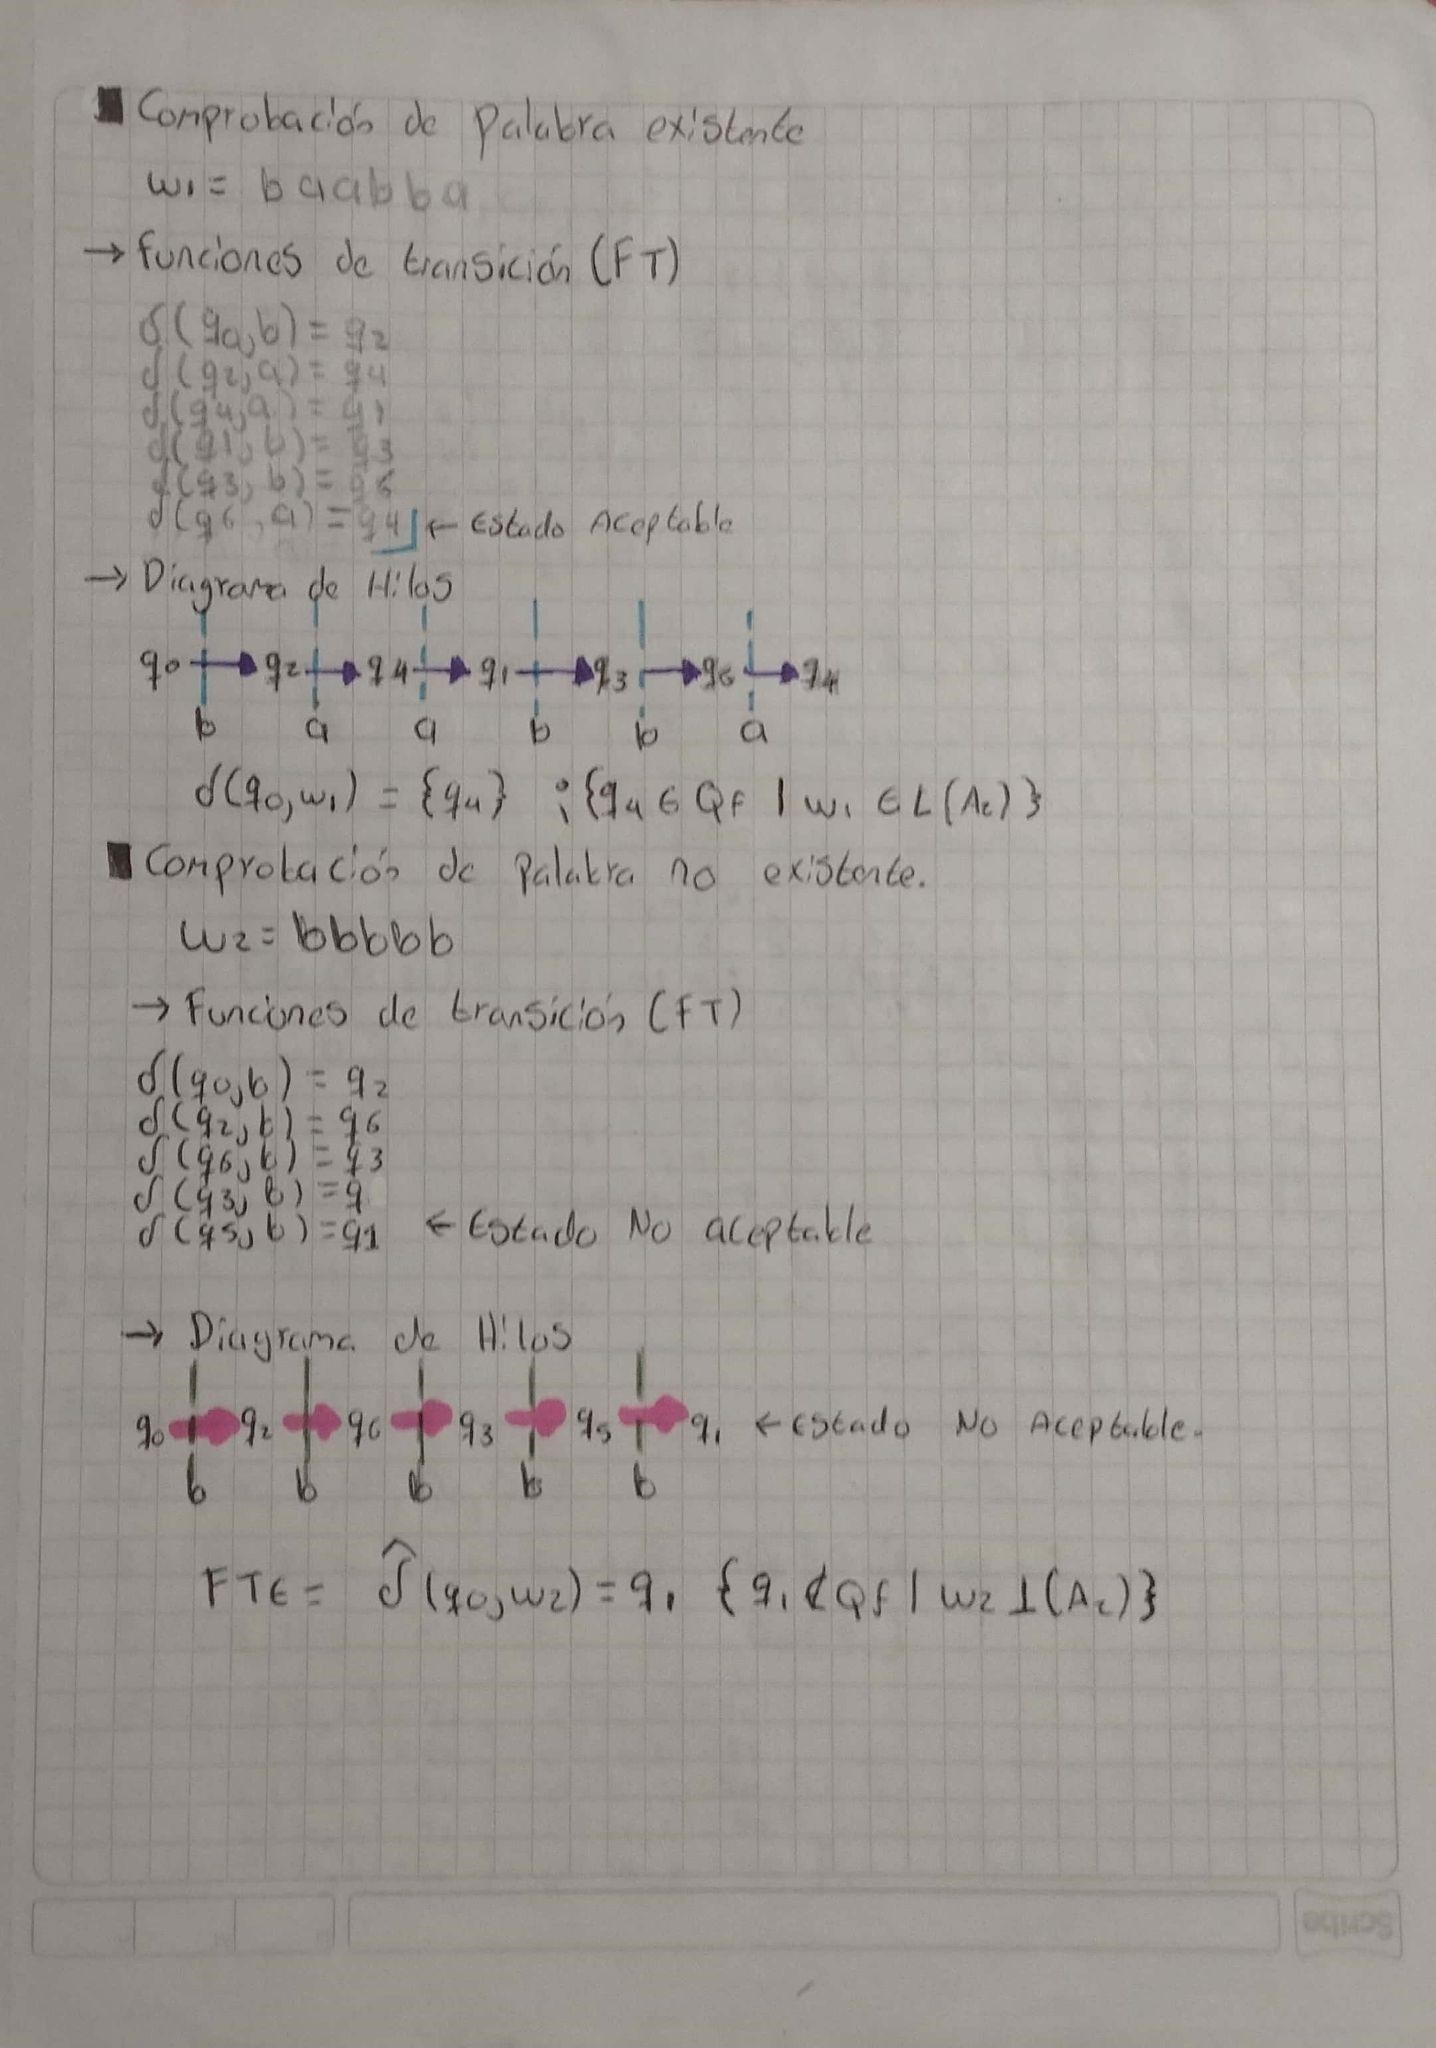 Comprobación de Palabra existente
w₁ = baabba
→ funciones de transición (FT)
δ(q0,b) = q2
δ(q2,a) = q4
δ(q4,a) = q1
δ(q1,b) = q3
δ(q3,b) = q6
δ(q6,a) = q4 ← Estado Aceptable
→ Diagrama de Hilos
q0 q2 q4 q1 q3 q6 q4
b a a b b a
δ(q0,w1) = {q4} ; {q4 ∈ QF | w1 ∈ L(Ac)}
Comprobación de Palabra no existente.
w2 = bbbbb
→ Funciones de transición (FT)
δ(q0,b) = q2
δ(q2,b) = q6
δ(q6,b) = q3
δ(q3,b) = q
δ(q5,b) = q1 ← Estado No aceptable
→ Diagrama de Hilos
q0 q2 q6 q3 q5 q1 ← Estado No Aceptable.
b b b b b
FTE = δ̂(q0,w2) = q1 {q1 ∉ Qf | w2 ⊥(Ac)}
Scribe